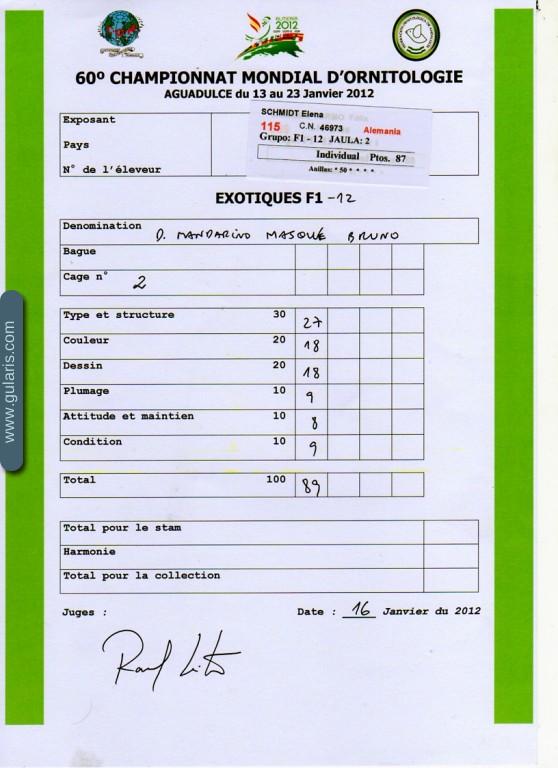 ALMERIA
2012
60º CHAMPIONNAT MONDIAL D'ORNITOLOGIE
AGUADULCE du 13 au 23 Janvier 2012
Exposant
Pays
N° de l'éleveur
SCHMIDT Elena
115 C.N. 46973 Alemania
Grupo: F1 - 12 JAULA: 2
Individual Ptos. 87
Anillas: * 50 * * * *
EXOTIQUES F1 -12
Denomination D. MANDARINO MASQUÉ BRUNO
Bague
Cage n° 2
Type et structure 30 27
Couleur 20 18
Dessin 20 18
Plumage 10 9
Attitude et maintien 10 8
Condition 10 9
Total 100 89
Total pour le stam
Harmonie
Total pour la collection
Juges : Date : 16 Janvier du 2012
www.gularis.com